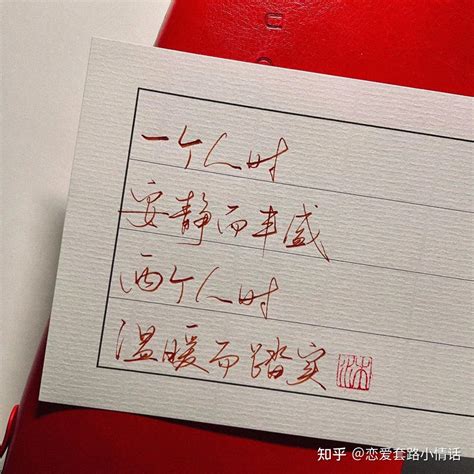 一个人时
安静而丰盛
两个人时
温暖而踏实
知乎 @恋爱套路小情话